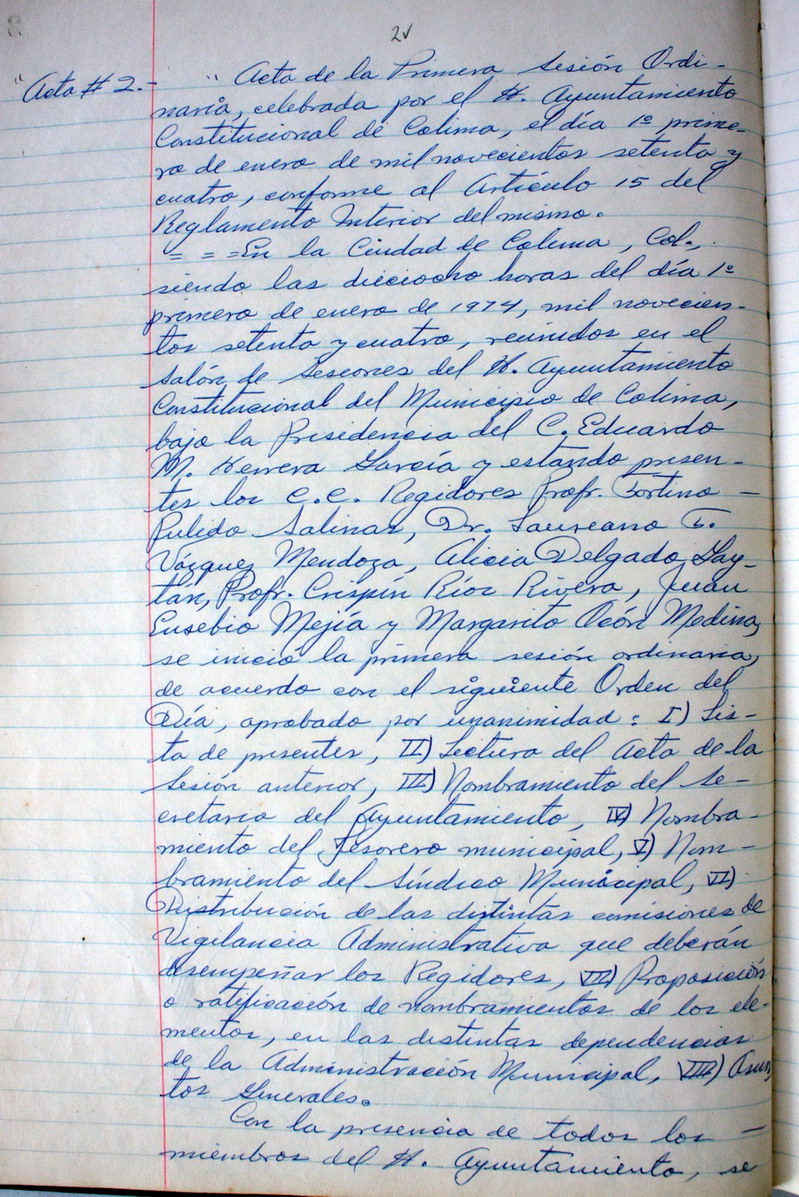 2v
"Acta # 2.- "Acta de la Primera Sesión Ordi-
naria, celebrada por el H. Ayuntamiento
Constitucional de Colima, el día 1º prime-
ro de enero de mil novecientos setenta y
cuatro, conforme al Artículo 15 del
Reglamento Interior del mismo.
= = =En la Ciudad de Colima, Col.,
siendo las dieciocho horas del día 1º
primero de enero de 1974, mil novecien-
tos setenta y cuatro, reunidos en el
Salón de Sesiones del H. Ayuntamiento
Constitucional del Municipio de Colima,
bajo la Presidencia del C. Eduardo
M. Herrera García y estando presen-
tes los C.C. Regidores Profr. Fortino -
Pulido Salinas, Dr. Laureano T.
Vázquez Mendoza, Alicia Delgado Gay-
tán, Profr. Crispín Ríos Rivera, Juan
Eusebio Mejía y Margarito Ocón Medina,
se inició la primera sesión ordinaria,
de acuerdo con el siguiente Orden del
Día, aprobado por unanimidad: I) Lis-
ta de presentes, II) Lectura del Acta de la
Sesión anterior, III) Nombramiento del Se-
cretario del Ayuntamiento, IV) Nombra-
miento del Tesorero municipal, V) Nom-
bramiento del Síndico Municipal, VI)
Distribución de las distintas comisiones de
Vigilancia Administrativa que deberán
desempeñar los Regidores, VII) Proposición
o ratificación de nombramientos de los ele-
mentos, en las distintas dependencias
de la Administración Municipal, VIII) Asun-
tos Generales.
Con la presencia de todos los -
miembros del H. Ayuntamiento, se